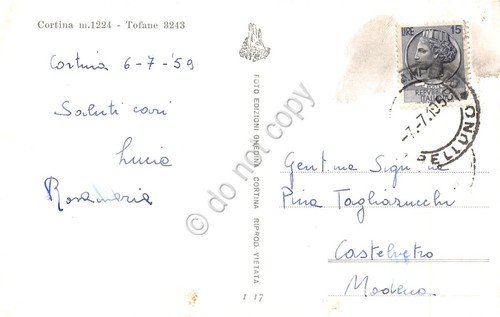 Cortina m.1224 - Tofane 3243
Cortina 6-7-'59
Saluti cari
Lucia
Rosamaria
FOTO EDIZIONI GHEDINA CORTINA RIPROD. VIETATA
1 17
LIRE 15
-7.-7.1959
BELLUNO
Gent.ma Sig.na
Pina Tagliazucchi
Castelvetro
Modena
do not copy